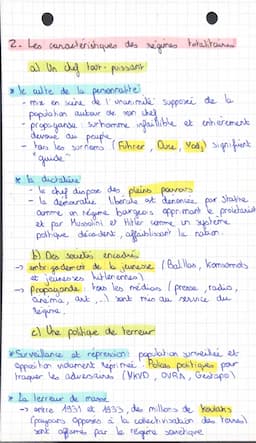 2. Les caractéristiques des régimes totalitaires
a) Un chef tout-puissant
* le culte de la personnalité
- mis en scène de l'unanimité supposée de la
population autour de son chef
- propagande : surhomme infaillible et entièrement
dévoué au peuple
- tous les surnoms (Führer, Duce, Vojd) signifient
"guide"
* la dictature
- le chef dispose des pleins pouvoirs
- la démocratie libérale est dénoncée par Staline
comme un régime bourgeois opprimant le prolétariat
et par Mussolini et Hitler comme un système
politique décadent, affaiblissant la nation.
b) Des sociétés encadrées
→ embrigadement de la jeunesse (Balilas, komsomols
et jeunesses hitlériennes)
→ Propagande : tous les médias (presse, radio,
cinéma, art, ...) sont mis au service du
régime.
c) Une politique de terreur
* Surveillance et répression : population surveillée et
opposition violemment réprimée. Polices politiques pour
traquer les adversaires (NKVD, OVRA, Gestapo)
* La terreur de masse
→ entre 1931 et 1933, des millions de koulaks
(paysans opposés à la collectivisation des terres)
sont affamés par le régime soviétique.